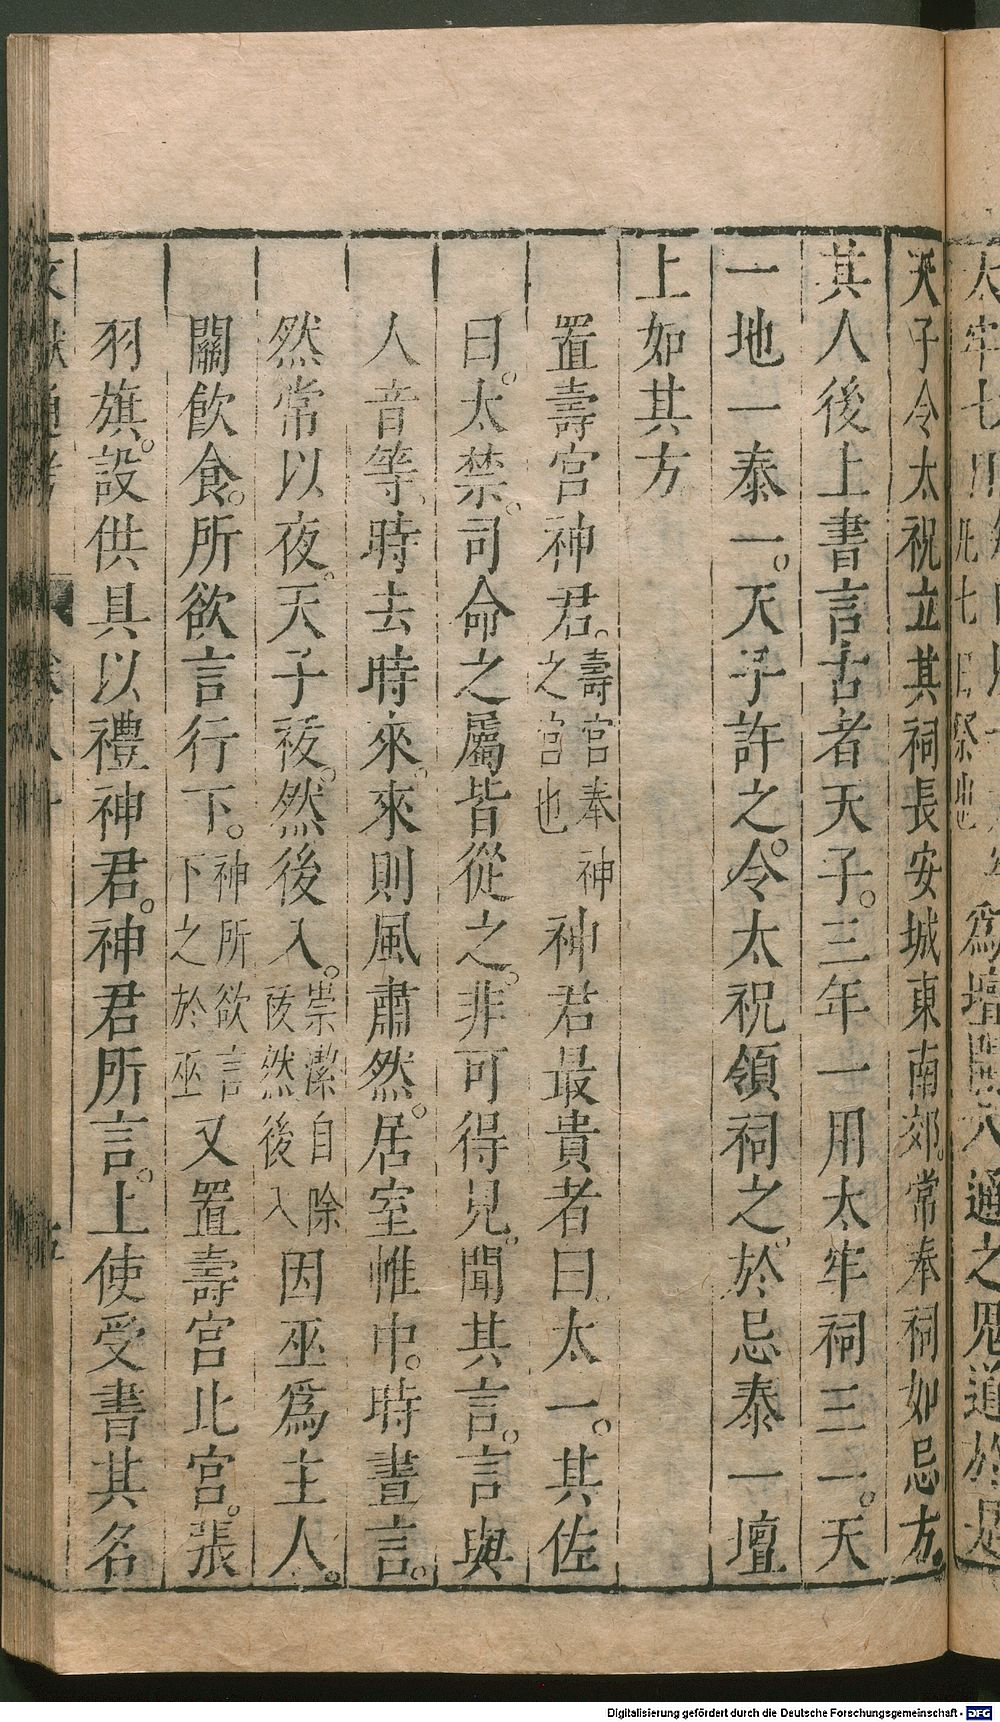 天子令太祝立其祠長安城東南郊。常奉祠如忌方。
其人後上書言古者天子。三年一用太牢祠三一。天
一地一泰一。天子許之。令太祝領祠之於忌泰一壇
上如其方
置壽宮神君。壽宮奉神之宮也神君最貴者曰太一。其佐
曰。太禁。司命之屬皆從之。非可得見。聞其言。言與
人音等。時去時來。來則風肅然。居室帷中。時晝言。
然常以夜。天子祓。然後入。崇潔自除祓然後入因巫爲主人。
關飲食。所欲言行下。神所欲言下之於巫又置壽宮北宮。張
羽旗。設供具以禮神君。神君所言。上使受書其名
Digitalisierung gefördert durch die Deutsche Forschungsgemeinschaft - DFG